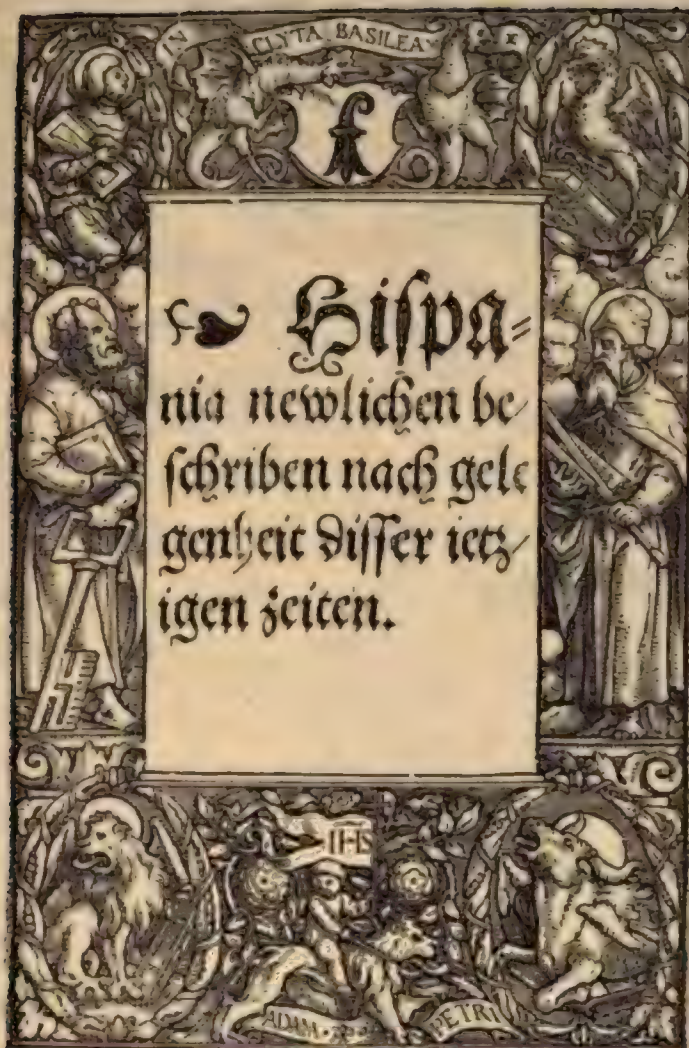 IN CLYTA BASILEA
Hiſpa-
nia newlichen be/
ſchriben nach gele
genheit diſſer ietz/
igen zeiten.
IHS
ADAM PETRI